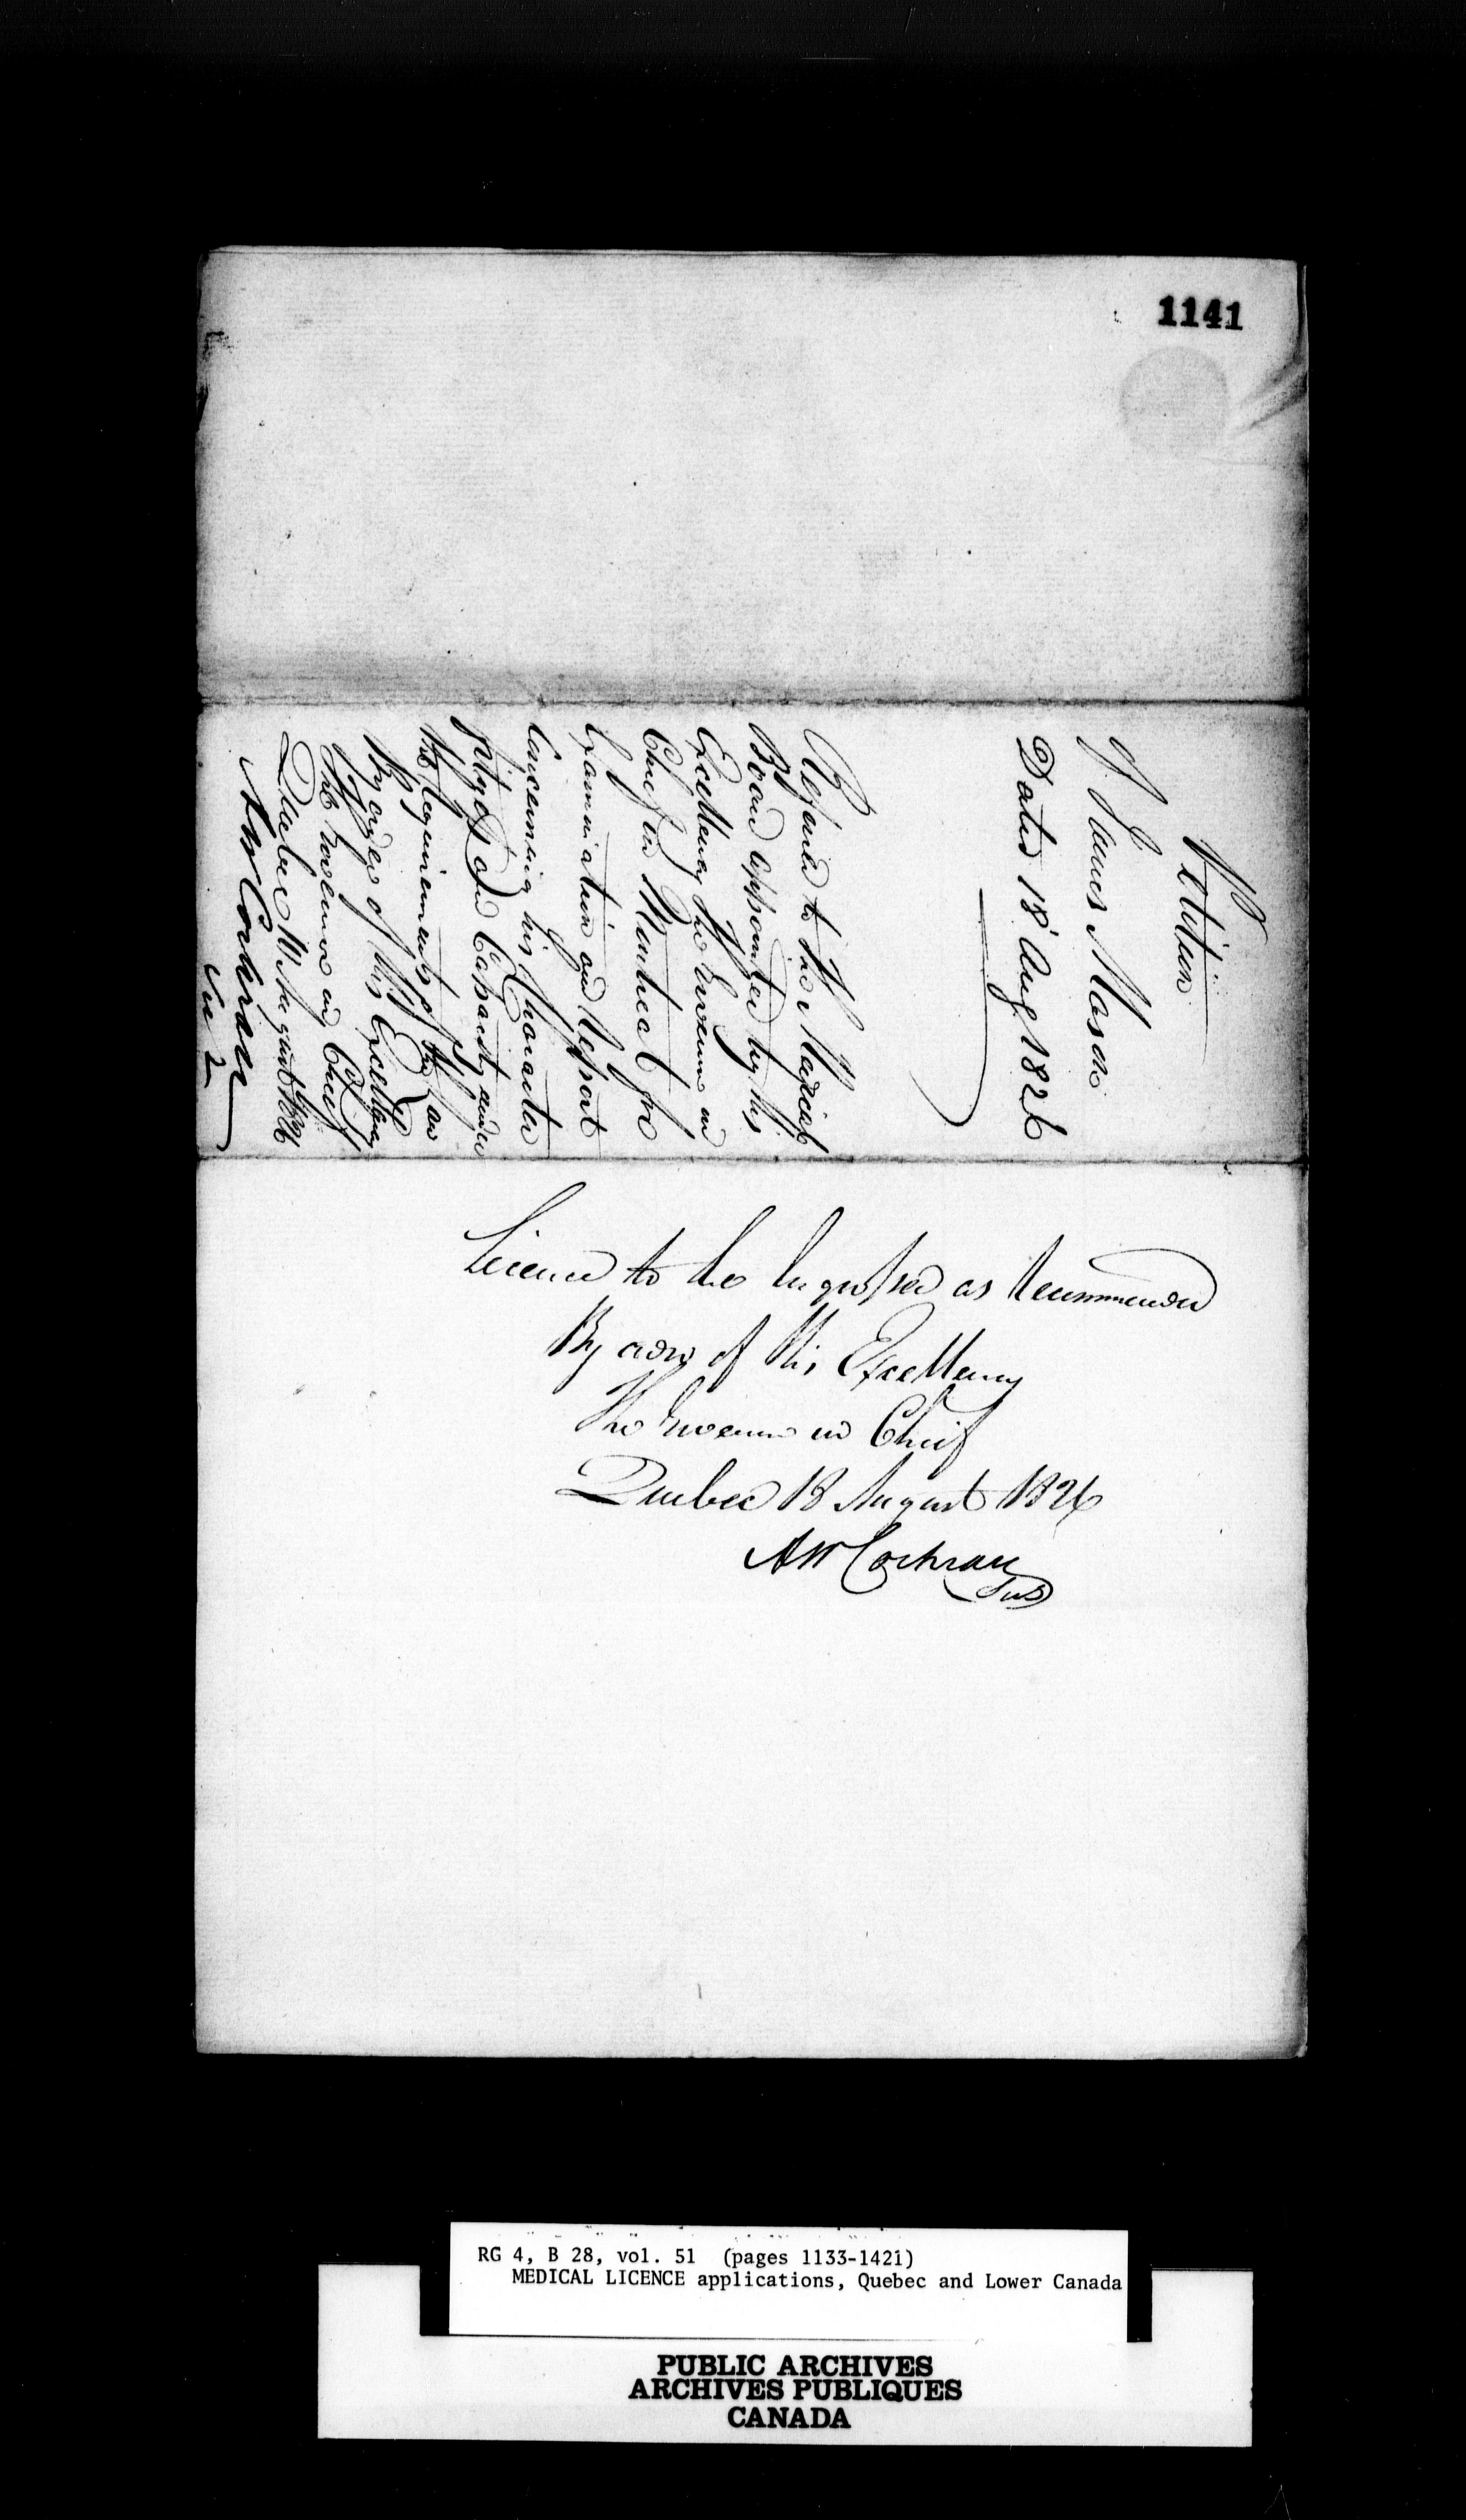 1141
Petition
of James Mason
Dated 18 Aug 1826
Referred to the Medical
Board appointed by his
Excellency the Governor in
Chief in Montreal for
Examination and Report
Concerning his Character
fitness and Capacity under
the requirements of the Law
By order of his Excellency
The Governor in Chief
Quebec August 1826
A W Cochran
Secy
Licence to be Engrossed as Recommended
By order of His Excellency
The Governor in Chief
Quebec 18 August 1826
A W Cochran
RG 4, B 28, vol. 51 (pages 1133-1421)
MEDICAL LICENCE applications, Quebec and Lower Canada
PUBLIC ARCHIVES
ARCHIVES PUBLIQUES
CANADA